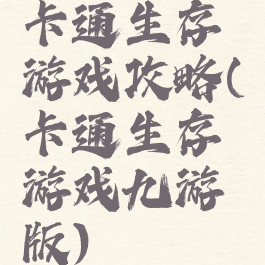 卡通生存
游戏攻略(
卡通生存
游戏九游
版)